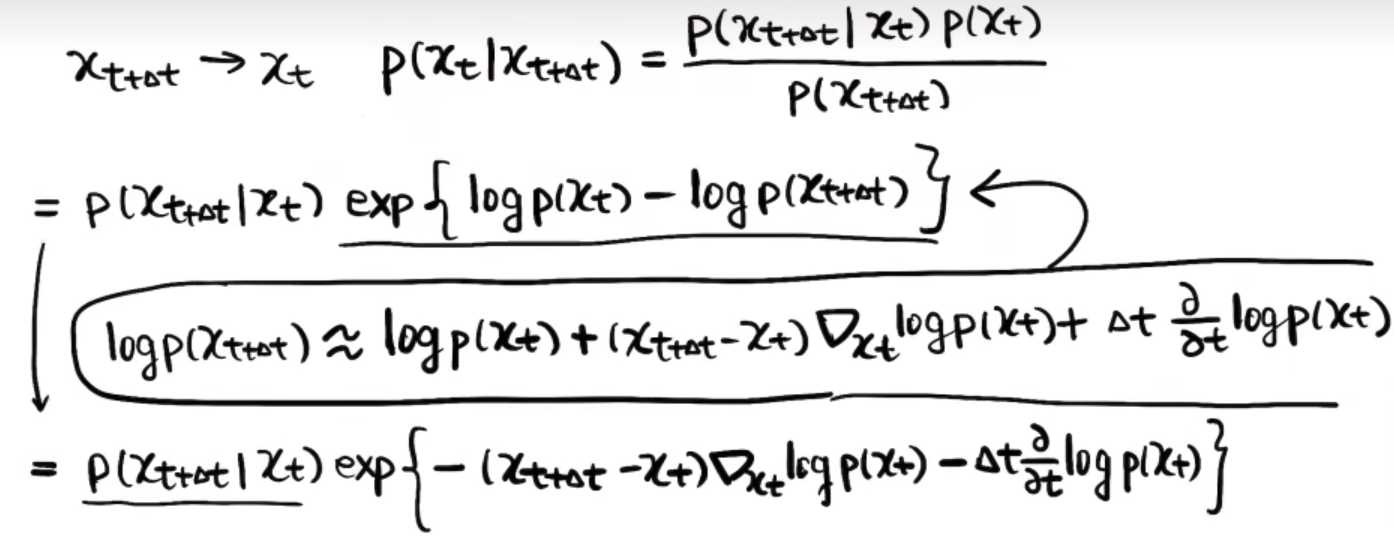 x_{t+Δt} → x_t   p(x_t|x_{t+Δt}) = \frac{p(x_{t+Δt}|x_t) p(x_t)}{p(x_{t+Δt})}
= p(x_{t+Δt}|x_t) exp{ log p(x_t) − log p(x_{t+Δt}) }
log p(x_{t+Δt}) ≈ log p(x_t) + (x_{t+Δt} − x_t) ∇_{x_t} log p(x_t) + Δt \frac{∂}{∂t} log p(x_t)
= p(x_{t+Δt}|x_t) exp{ − (x_{t+Δt} − x_t) ∇_{x_t} log p(x_t) − Δt \frac{∂}{∂t} log p(x_t) }